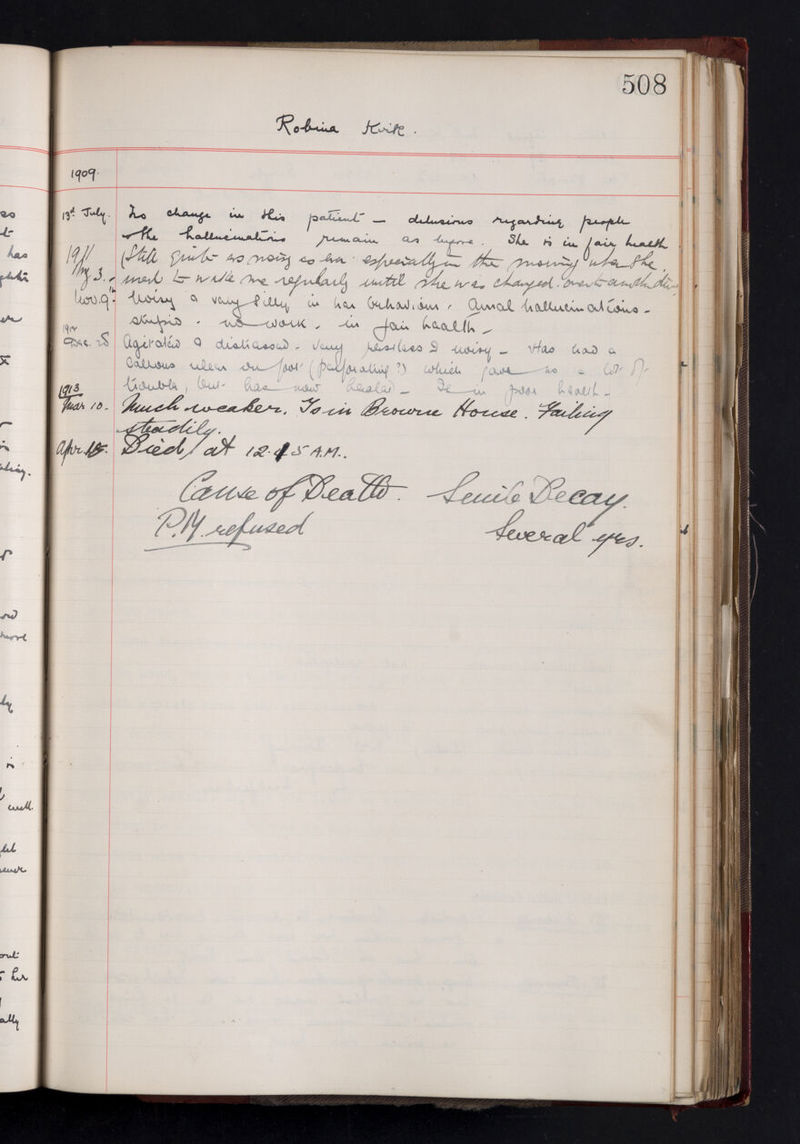 508
Robina Kirk.
1909.
13th July. No change in this patient — delusions regarding people
& the hallucinations remain as before. She is in fair health
1911 Still quite as noisy as ever especially in the morning when she
Aug 3. used to wake me regularly until she was changed over to another
Nov. 9th Noisy & very silly in her behaviour. Aural hallucinations -
stupid. no work. in fair health -
1912
Dec. 28 Agitated & distressed - very restless & noisy - Has had a
callous ulcer on foot (perforating?) which gave us a lot of
trouble, but has now healed - Is in poor health -
1913
Mar 10. Much weaker. Is in Browne House. Failing
steadily.
Apr 15. Died at 12.45 A.M..
Cause of Death. Senile Decay.
P.M. refused Several yrs.
has
well
out
her